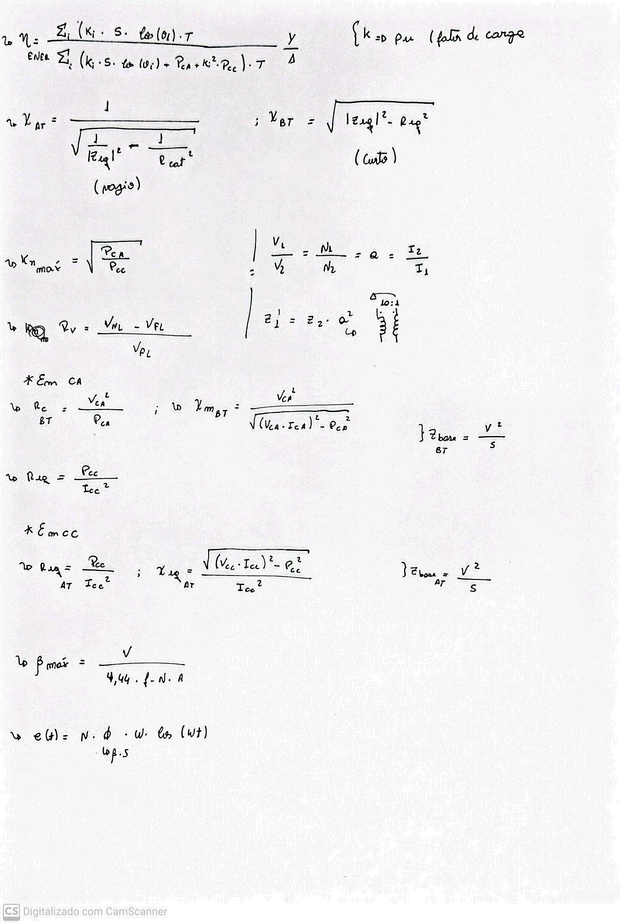 ↳ η = Σᵢ (Kᵢ · S · cos(θᵢ) · T / Σᵢ (Kᵢ · S · cos(θᵢ) + P_CA + Kᵢ² · P_CC) · T   Y/Δ   { K ⇒ pu (fator de carga
ENER
↳ X_AT = 1 / √(1/|Zeq|² - 1/R_cat²) ; X_BT = √(|Zeq|² - Req²)
(vazio) (curto)
↳ Kη_máx = √(P_CA / P_CC)   | V₁/V₂ = N₁/N₂ = a = I₂/I₁
↳ Rv = (V_NL - V_FL) / V_FL   | Z₁' = Z₂ · a²   10:1
* Em CA
↳ Rc_BT = V_CA² / P_CA ; ↳ Xm_BT = V_CA² / √((V_CA · I_CA)² - P_CA²)   } Zbase_BT = V²/S
↳ Req = Pcc / Icc²
* Em CC
↳ Req_AT = Pcc / Icc² ; Xeq_AT = √((Vcc · Icc)² - Pcc²) / Icc²   } Zbase_AT = V²/S
↳ β máx = V / 4,44 · f · N · A
↳ e(t) = N · ϕ · W · cos (Wt)
↳ β.S
CS Digitalizado com CamScanner